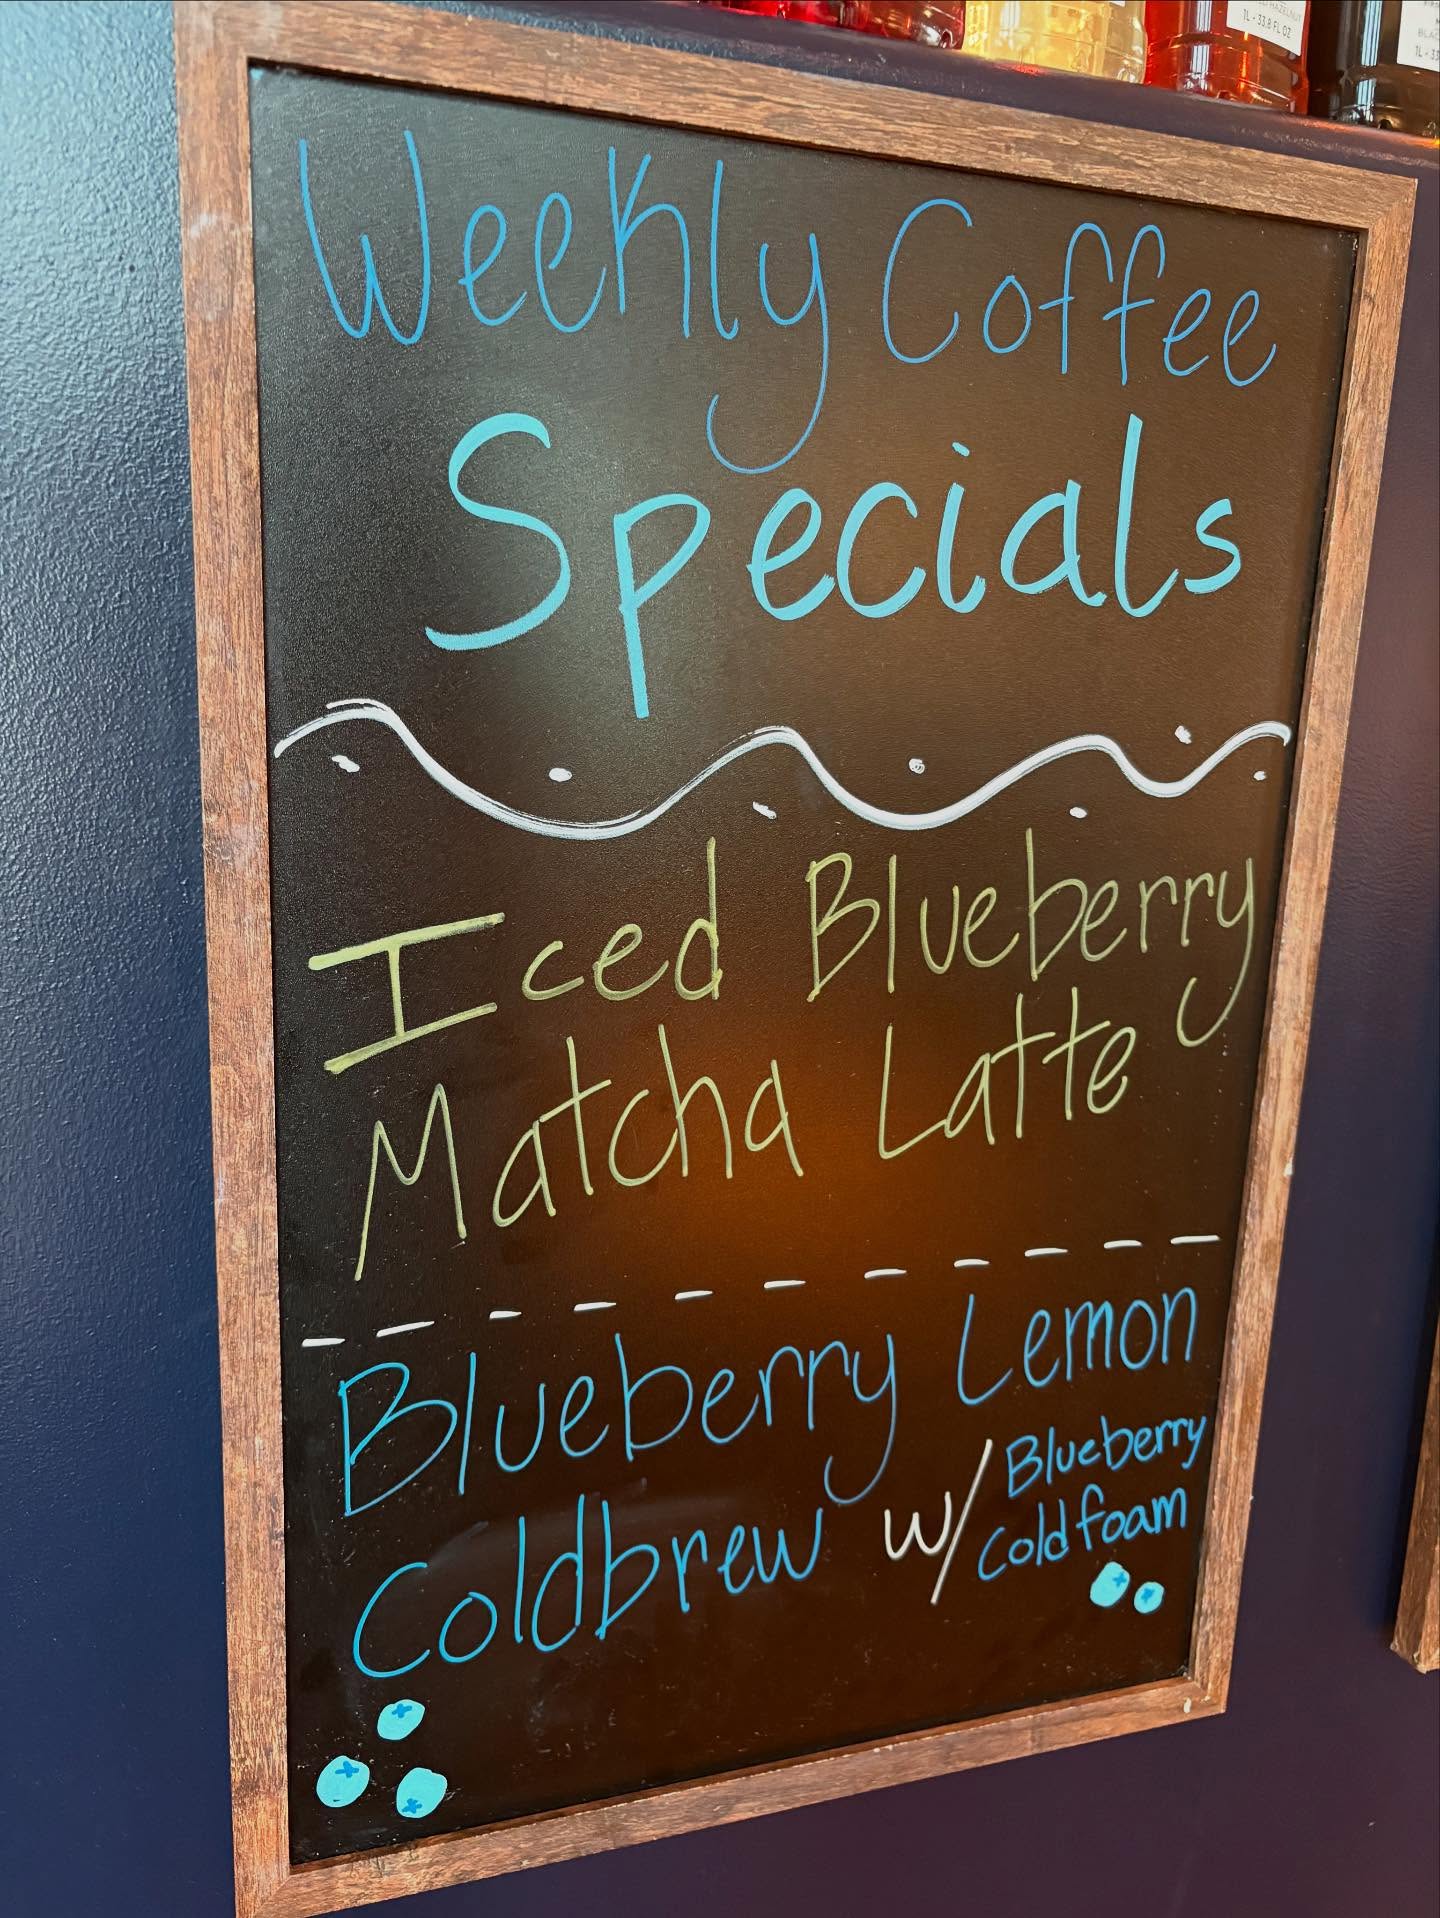 HAZELNUT
1L - 33.8 FL OZ
1L - 33
Weekly Coffee
Specials
Iced Blueberry
Matcha Latte
Blueberry Lemon
Coldbrew w/ Blueberry
Cold foam